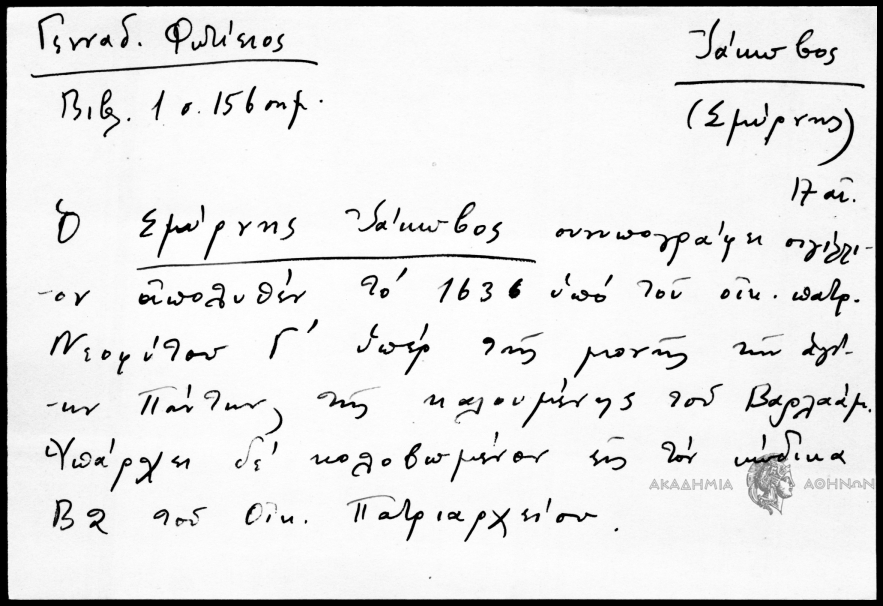 Γενναδ. Φωτίειος
Βιβλ. 1 σ. 156 σημ.
Ἰάκωβος
(Σμύρνης)
17 αἰ.
Ὁ Σμύρνης Ἰάκωβος συνυπογράφει σιγίλλι-
-ον ἀπολυθέν τό 1636 ὑπό τοῦ οἰκ. πατρ.
Νεοφύτου Γ' ὑπέρ τῆς μονῆς τῶν ἁγί-
-ων Πάντων, τῆς καλουμένης τοῦ Βαρλαάμ.
Ὑπάρχει δέ κολοβωμένον εἰς τόν κώδικα
Β2 τοῦ Οἰκ. Πατριαρχείου.
ΑΚΑΔΗΜΙΑ ΑΘΗΝΩΝ